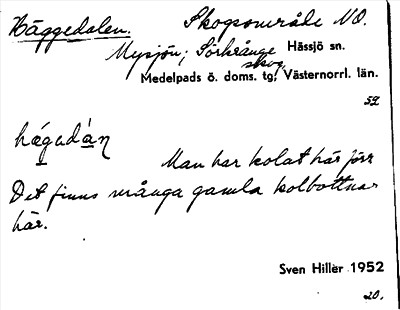 Häggedalen. Skogsområde NO.
Mysjön; Sörkrånge Hässjö sn.
skog,
Medelpads ö. doms. tg, Västernorrl. län.
59
hägədàn
Man har kolat här förr
Det finns många gamla kolbottnar
här.
Sven Hillér 1952
20.